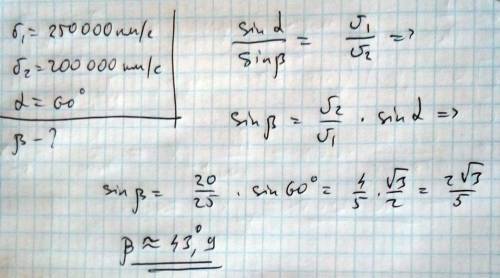 υ₁ = 250000 км/с
υ₂ = 200 000 км/с
α = 60°
β - ?
sin α / sin β = υ₁ / υ₂ =>
sin β = υ₂ / υ₁ · sin α =>
sin β = 20 / 25 · sin 60° = 4 / 5 · √3 / 2 = 2√3 / 5
β ≈ 43°,9